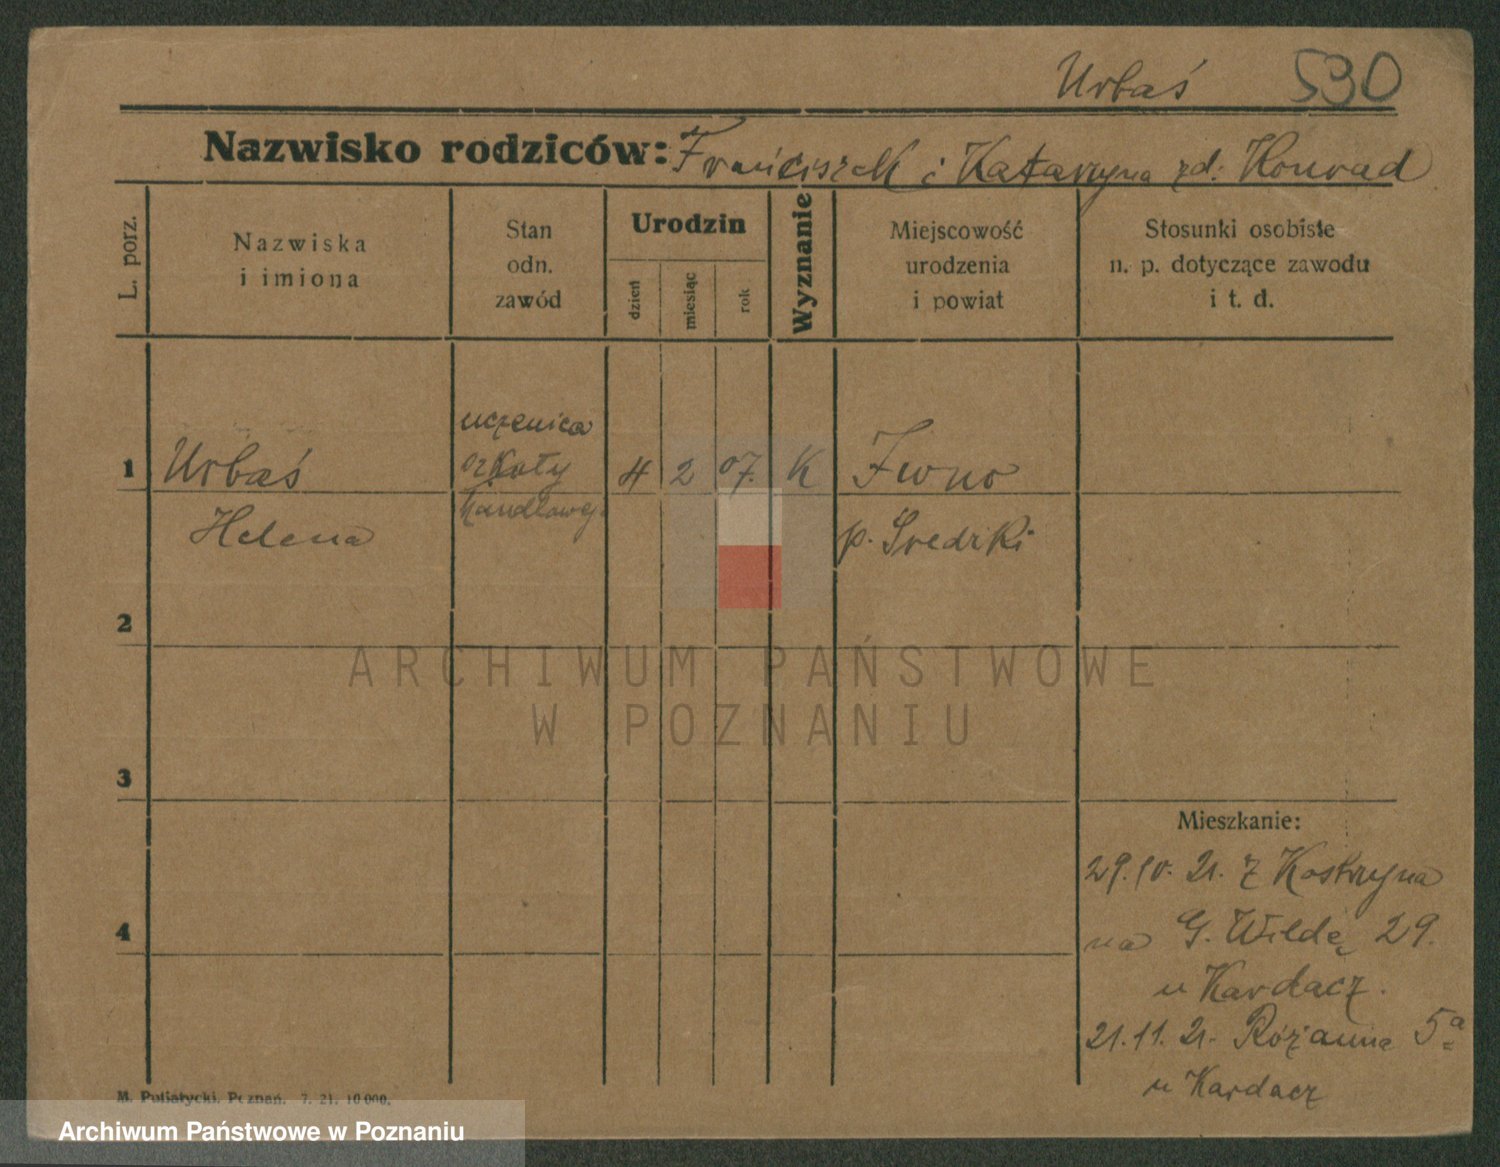 Urbaś 530
Nazwisko rodziców: Franciszek i Katarzyna zd. Konrad
L. porz.
Nazwiska
i imiona
Stan
odn.
zawód
Urodzin
dzień
miesiąc
rok
Wyznanie
Miejscowość
urodzenia
i powiat
Stosunki osobiste
n. p. dotyczące zawodu
i t. d.
1
Urbaś
Helena
uczenica
szkoły
handlowej
4 2 07. K
Iwno
p. Średzki
2
3
4
Mieszkanie:
29.10. 21. z Kostrzyna
na G. Wildę 29.
u Kardacz.
21.11. 21. Różanna 5a
u Kardacz
M. Putiatycki, Poznań. 7. 21. 10000.
ARCHIWUM PAŃSTWOWE
W POZNANIU
Archiwum Państwowe w Poznaniu